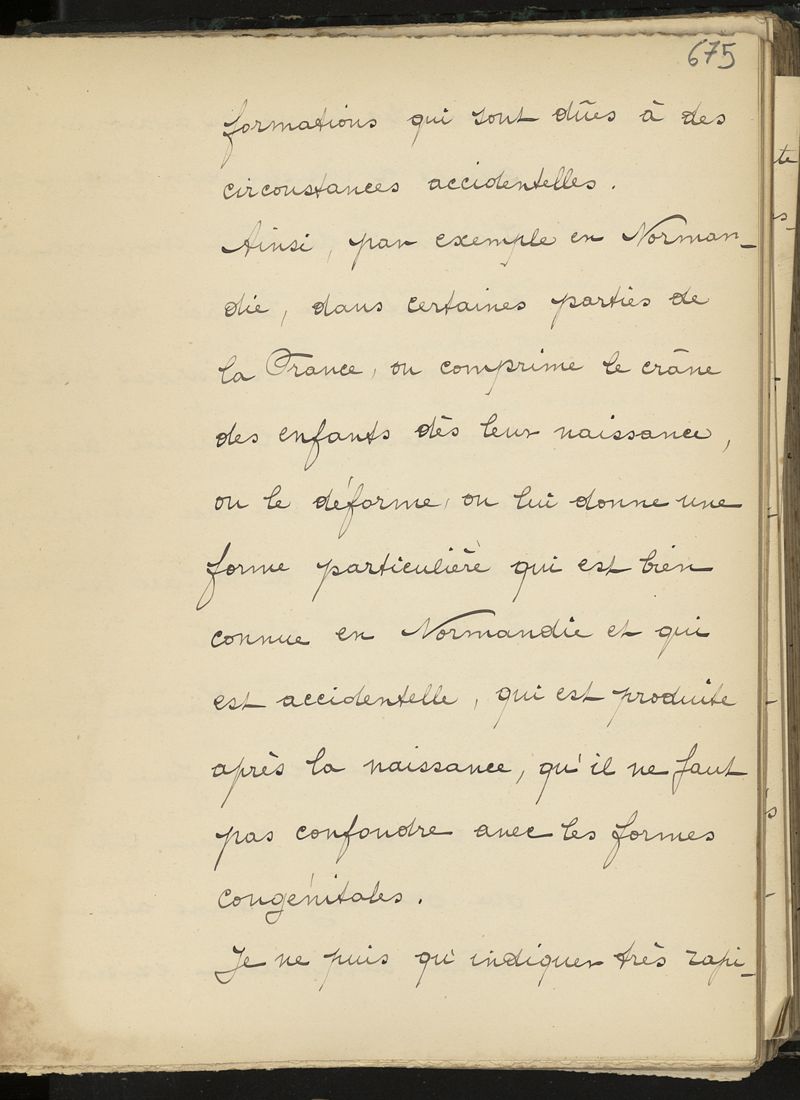 675
formations qui sont dûes à des
circonstances accidentelles.
Ainsi, par exemple en Norman-
die, dans certaines parties de
la France, on comprime le crâne
des enfants dès leur naissance,
on le déforme, on lui donne une
forme particulière qui est bien
connue en Normandie et qui
est accidentelle, qui est produite
après la naissance, qu'il ne faut
pas confondre avec les formes
congénitales.
Je ne puis qu'indiquer très rapi-
te
s-
s